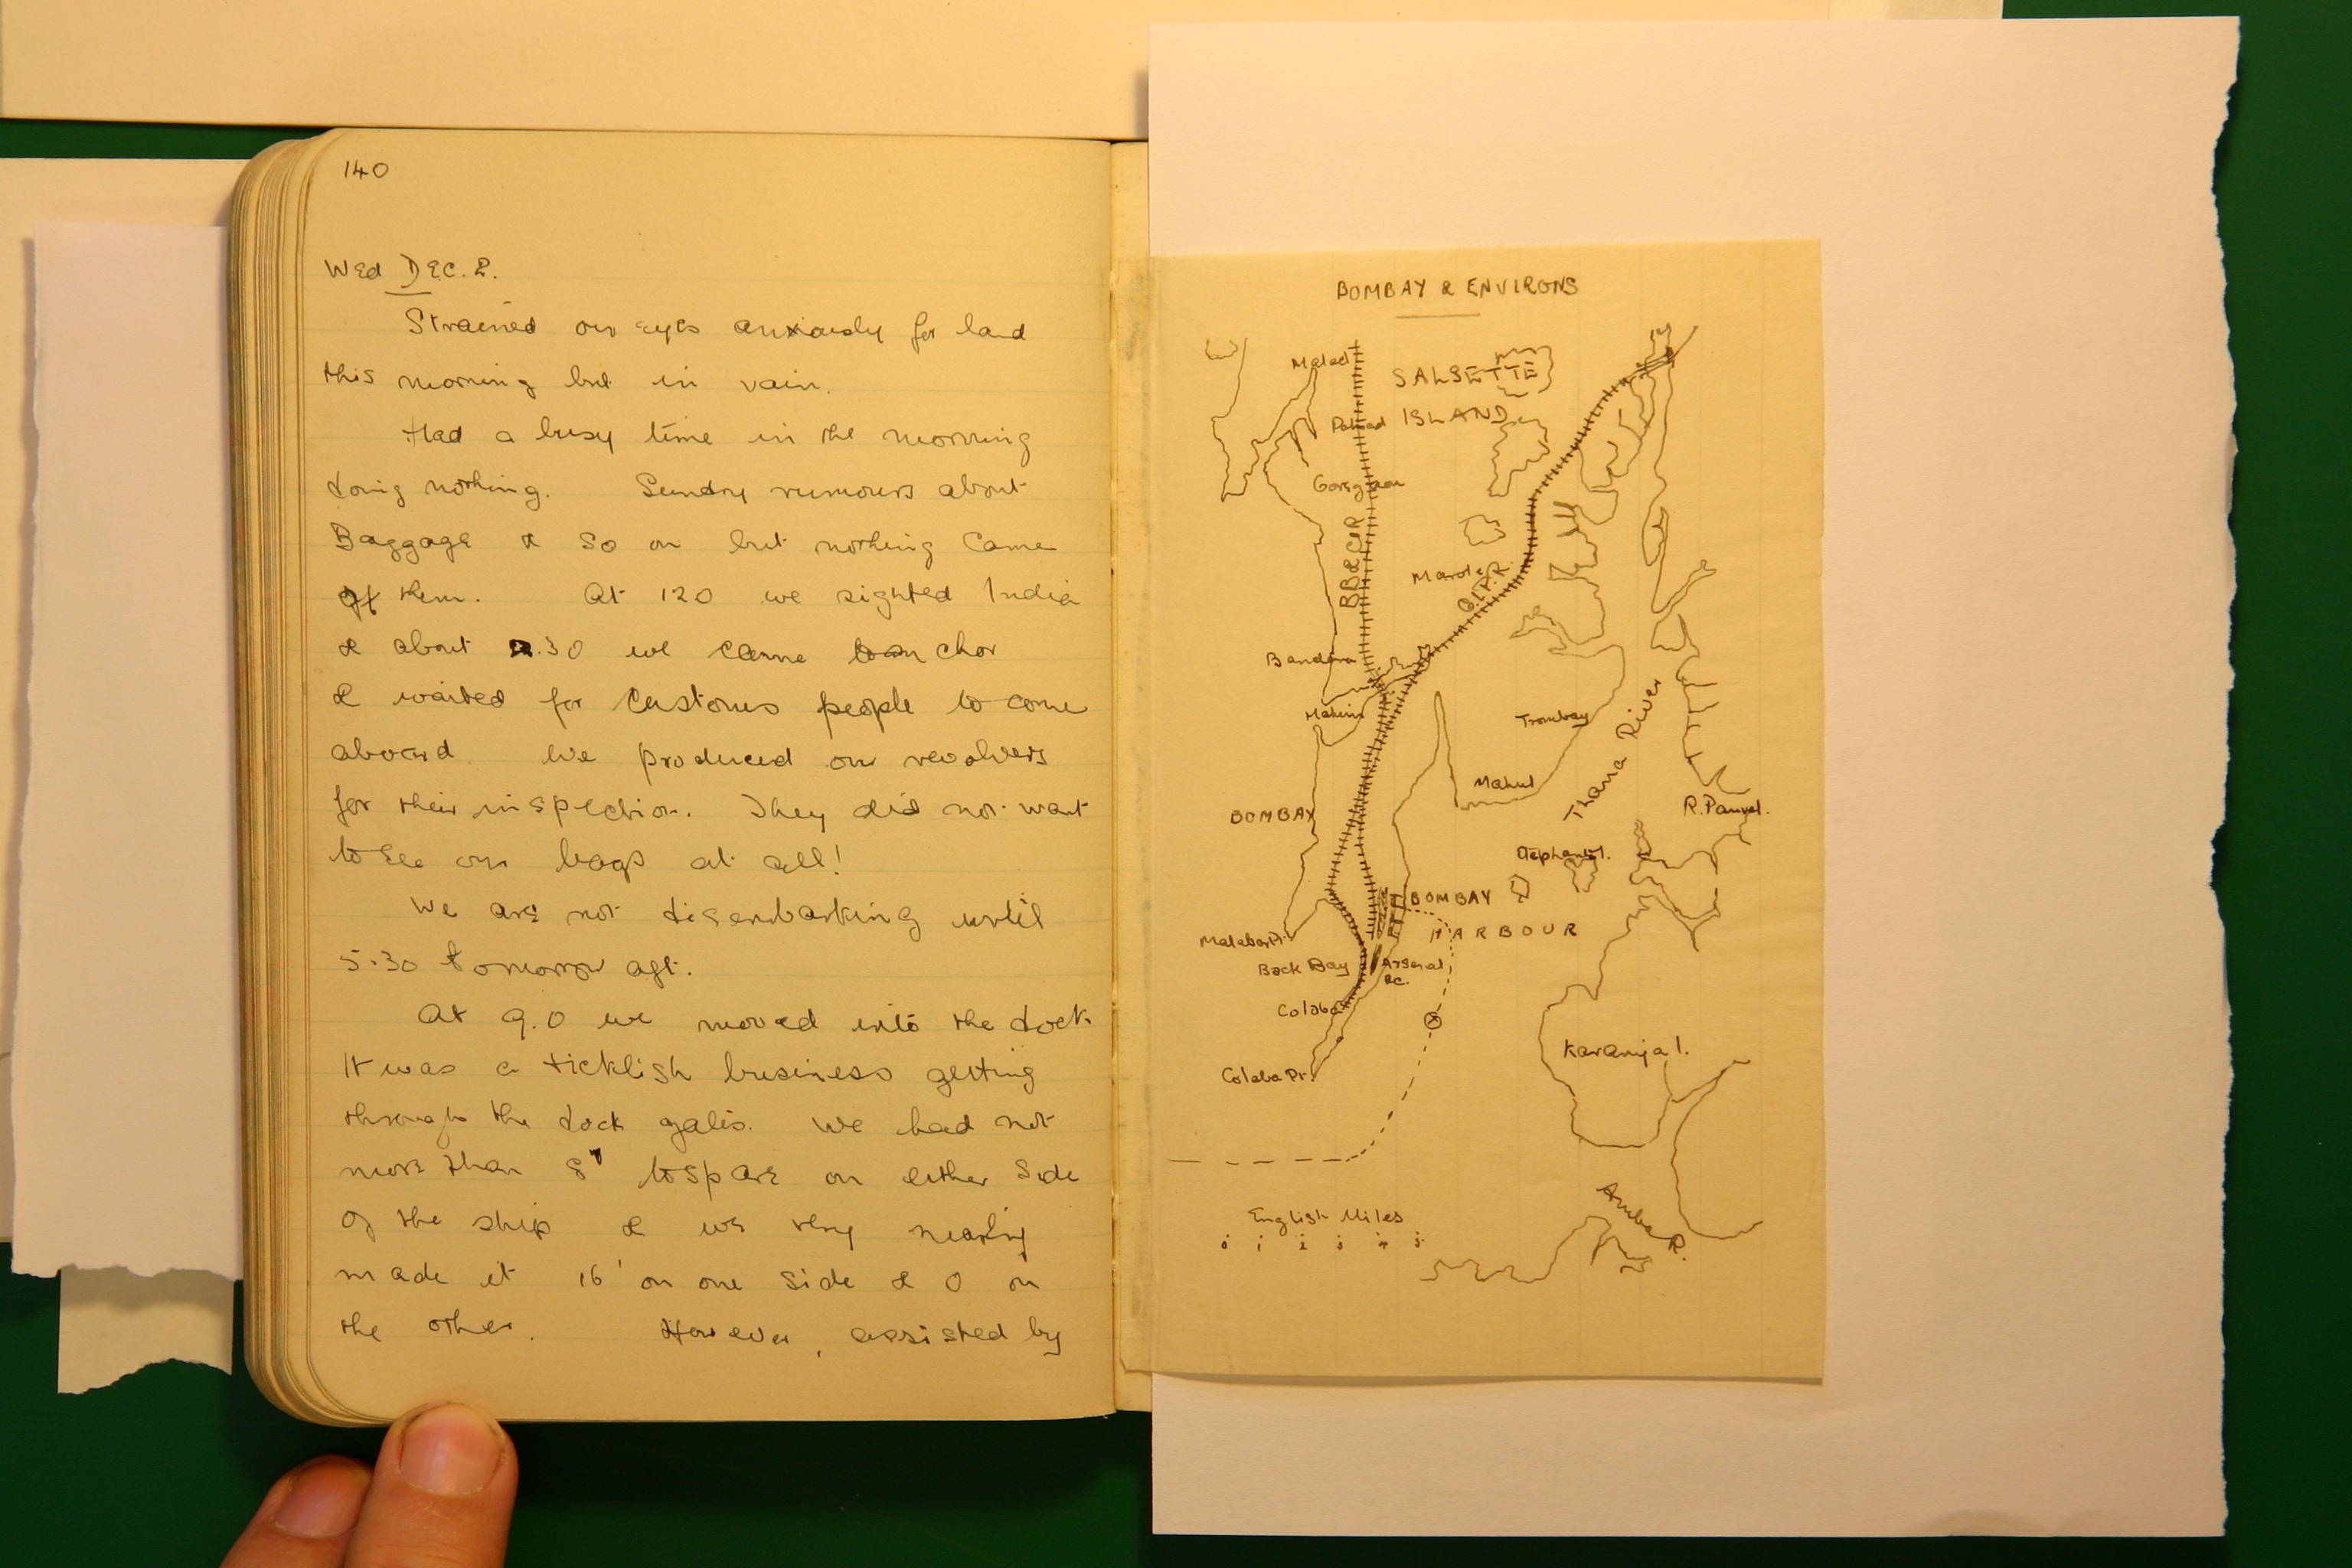 140
Wed DEC. 2.
Strained our eyes anxiously for land
this morning but in vain.
Had a busy time in the morning
doing nothing. Sundry rumours about
Baggage & so on but nothing came
of them. At 120 we sighted India
& about .30 we came to anchor
& waited for Customs people to come
aboard. We produced our revolvers
for their inspection. They did not want
to see our bags at all!
We are not disembarking until
5.30 tomorrow aft.
At 9.0 we moved into the dock.
It was a ticklish business getting
through the dock gates. We had not
more than 8' to spare on either side
of the ship & we very nearly
made it 16' on one side & 0 on
the other. However, assisted by
BOMBAY & ENVIRONS
Malad
SALSETTE
ISLAND
Goregaon
BB&CIR
G.I.P.R.
Bandora
Mahim
Trombay
Mahul
Thana River
R. Panvel.
BOMBAY
Elephanta I.
BOMBAY
HARBOUR
Malabar Pt.
Back Bay
Arsenal
&c.
Colaba
Colaba Pt.
Karanja I.
Amba R.
English Miles
0 1 2 3 4 5